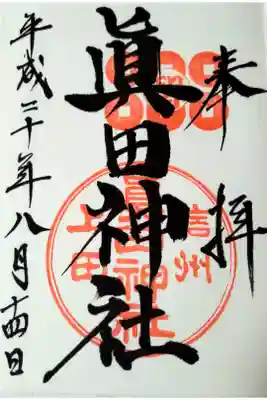 奉拝
眞田神社
信州
上田
眞田神社
平成二十年八月十四日